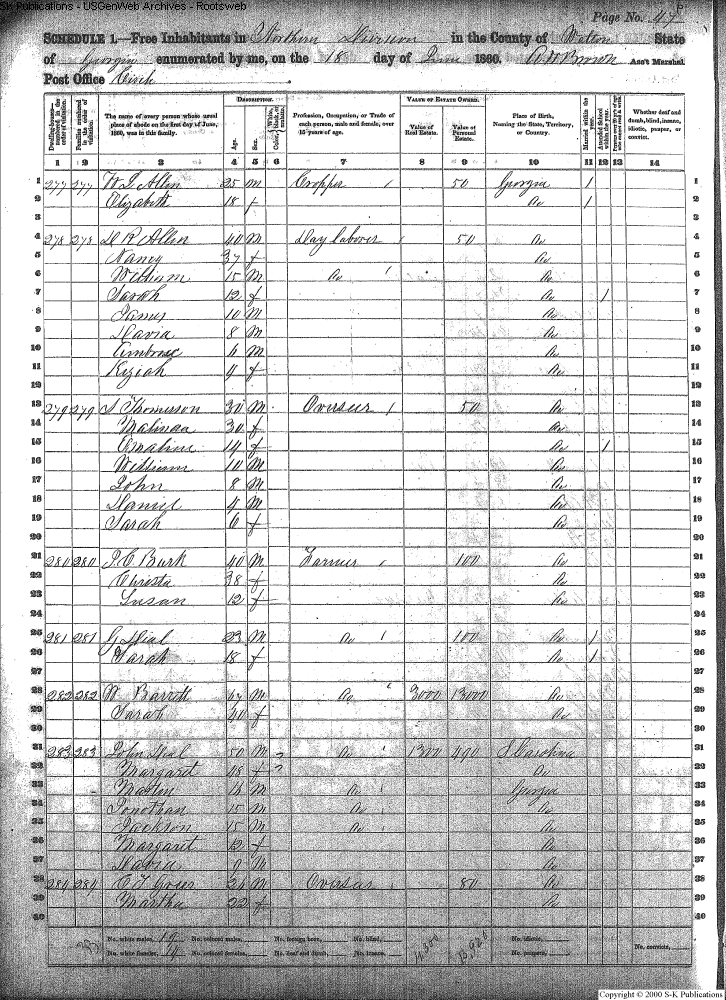 S-K Publications - USGenWeb Archives - Rootsweb
Page No. 47
SCHEDULE 1.—Free Inhabitants in Northern Division in the County of Walton State
of Georgia enumerated by me, on the 18 day of June 1860. Ass't Marshal
Post Office
DESCRIPTION. VALUE OF ESTATE OWNED.
Dwelling-houses—numbered in the order of visitation. Families numbered in the order of visitation. The name of every person whose usual place of abode on the first day of June, 1860, was in this family. Age. Sex. Color, White, black, or mulatto. Profession, Occupation, or Trade of each person, male and female, over 15 years of age. Value of Real Estate. Value of Personal Estate. Place of Birth, Naming the State, Territory, or Country. Married within the year. Attended School within the year. Whether deaf and dumb, blind, insane, idiotic, pauper, or convict.
1 2 3 4 5 6 7 8 9 10 11 12 13 14
1 277 277 W L Allen 25 m Cropper 50 Georgia / 1
2 Elizabeth 18 f Do / 2
3 3
4 278 278 40 M Day laborer 50 Do 4
5 Nancy 37 f Do 5
6 William 15 M Do Do 6
7 Sarah 12 f Do / 7
8 James 10 M Do 8
9 David 8 M Do 9
10 Ambrose 6 M Do 10
11 Keziah 4 f Do 11
12 12
13 279 279 S Thomerson 30 M Overseer 50 Do 13
14 Malinda 30 f Do 14
15 Emaline 14 f Do / 15
16 William 10 M Do 16
17 John 8 M Do 17
18 Daniel 4 M Do 18
19 Sarah 6 f Do 19
20 20
21 280 280 J C Burk 40 M Farmer 100 Do 21
22 Christa 38 f Do 22
23 Susan 12 f Do 23
24 24
25 281 281 G Dial 23 M Do 100 Do / 25
26 Sarah 18 f Do / 26
27 27
28 282 282 W Barrett 67 M Do 3000 13000 Do 28
29 Sarah 40 f Do 29
30 30
31 283 283 John Dial 50 M Do 1300 490 S Carolina 31
32 Margaret 48 f Do 32
33 Martin 16 M Do Georgia 33
34 Jonathan 15 M Do Do 34
35 Jackson 15 M Do Do 35
36 Margaret 12 f Do 36
37 David M Do 37
38 284 284 Greer M Overseer 80 Do 38
39 Martha 22 f Do 39
40 40
No. white males, 19 No. colored males, No. foreign born, No. blind, No. idiotic, No. convicts,
No. white females, No. colored females, No. deaf and dumb, No. insane, No. paupers,
Copyright © 2000 S-K Publications